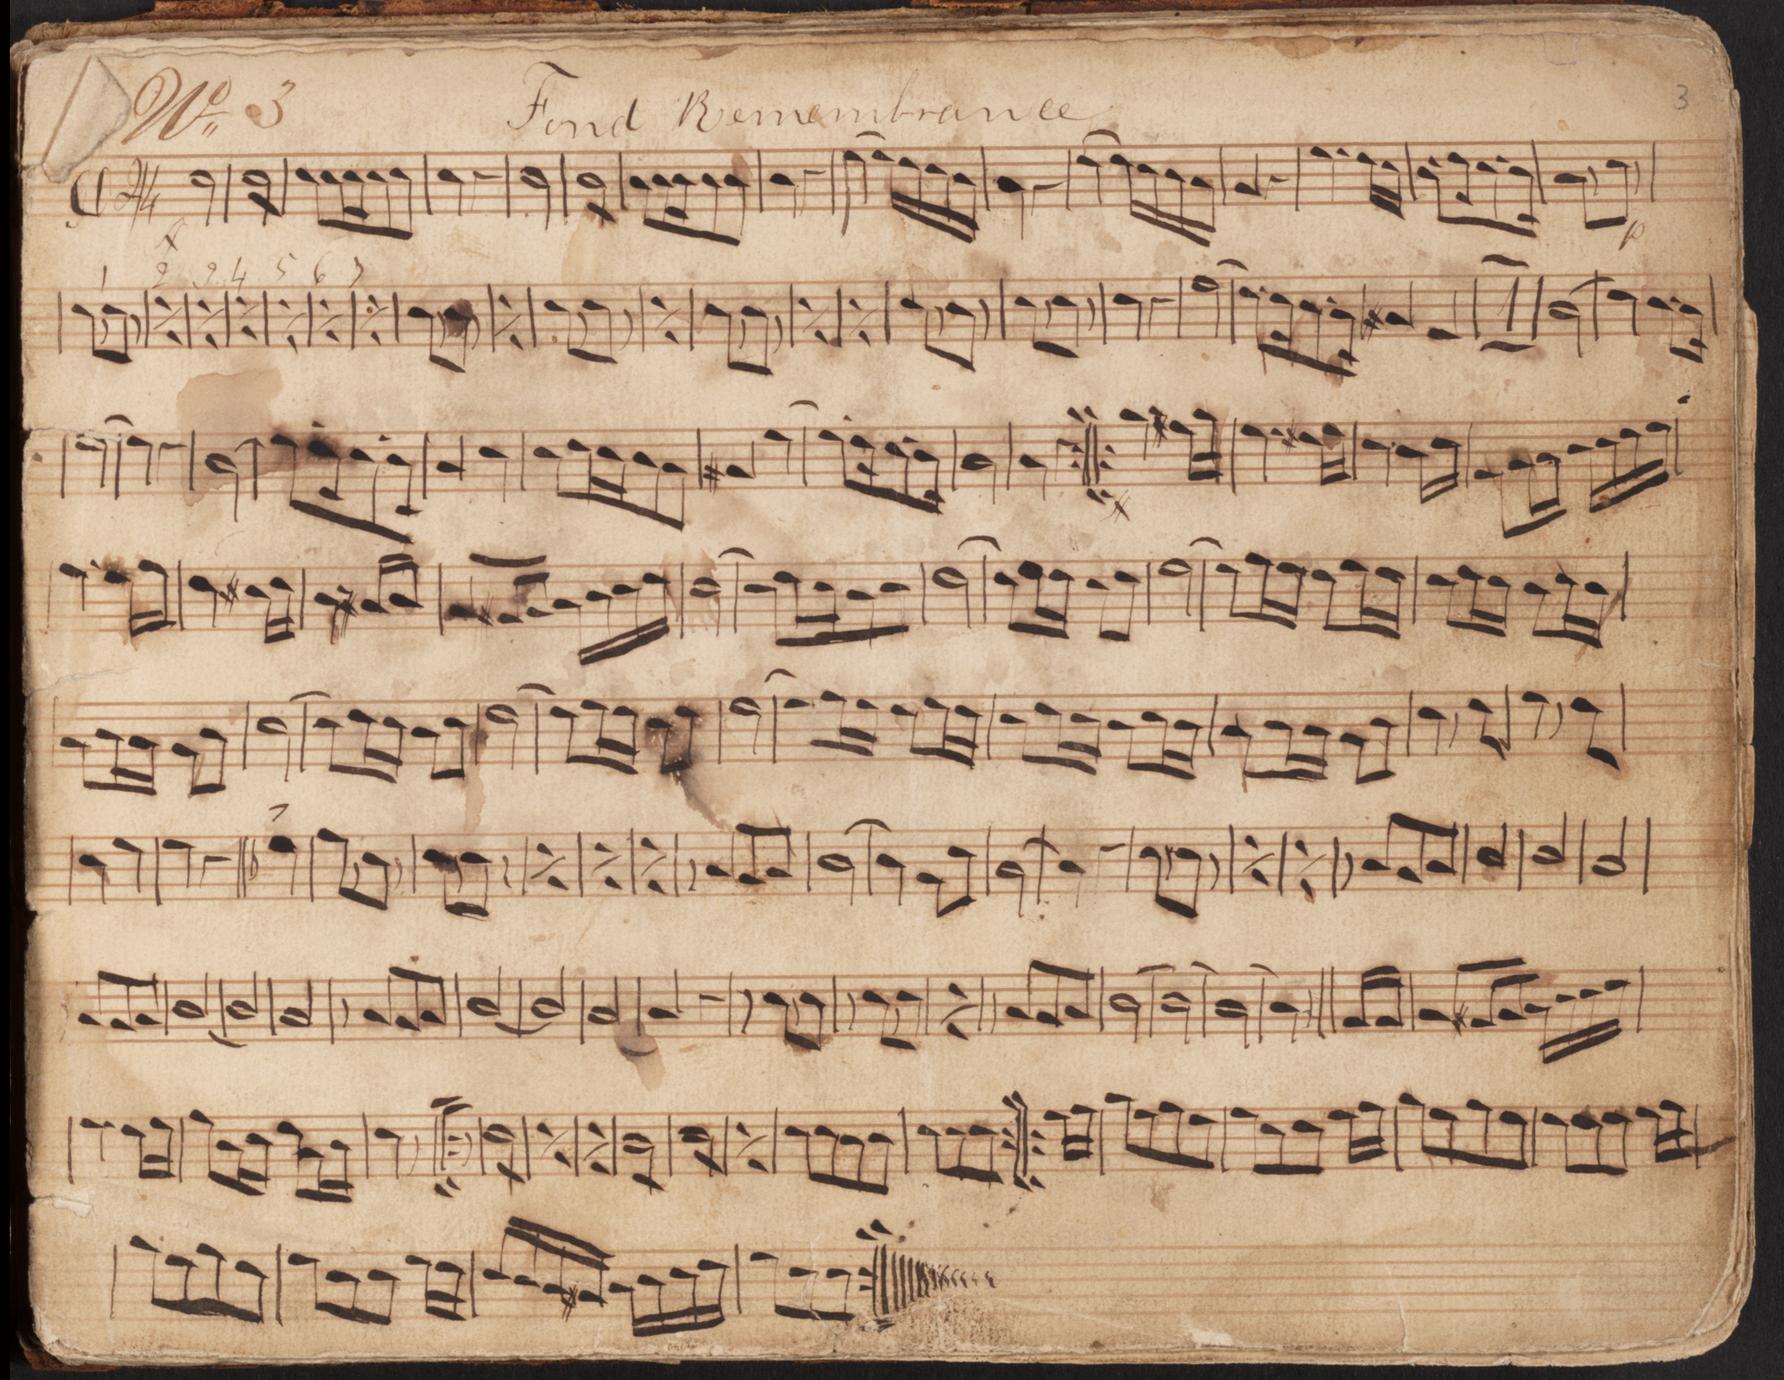 No. 3 Fond Remembrance 3
2/4
p
1 2 3 4 5 6 7